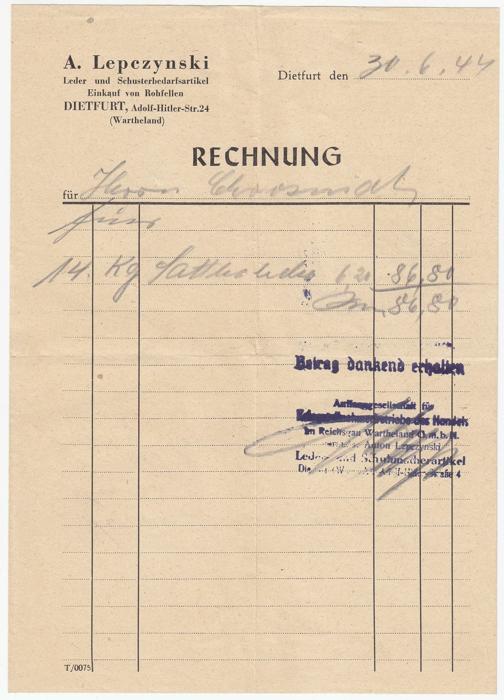 A. Lepczynski
Leder und Schusterbedarfsartikel
Einkauf von Rohfellen
DIETFURT, Adolf-Hitler-Str.24
(Wartheland)
Dietfurt den 30.6.44
RECHNUNG
für Herrn
14. Kg 6,20 86,80
86,80
Betrag dankend erhalten
Auffanggesellschaft für
des Handels
im Reichsgau Wartheland G.m.b.H.
Anton Lepczynski
Leder und Schuhmacherartikel
4
T/0075